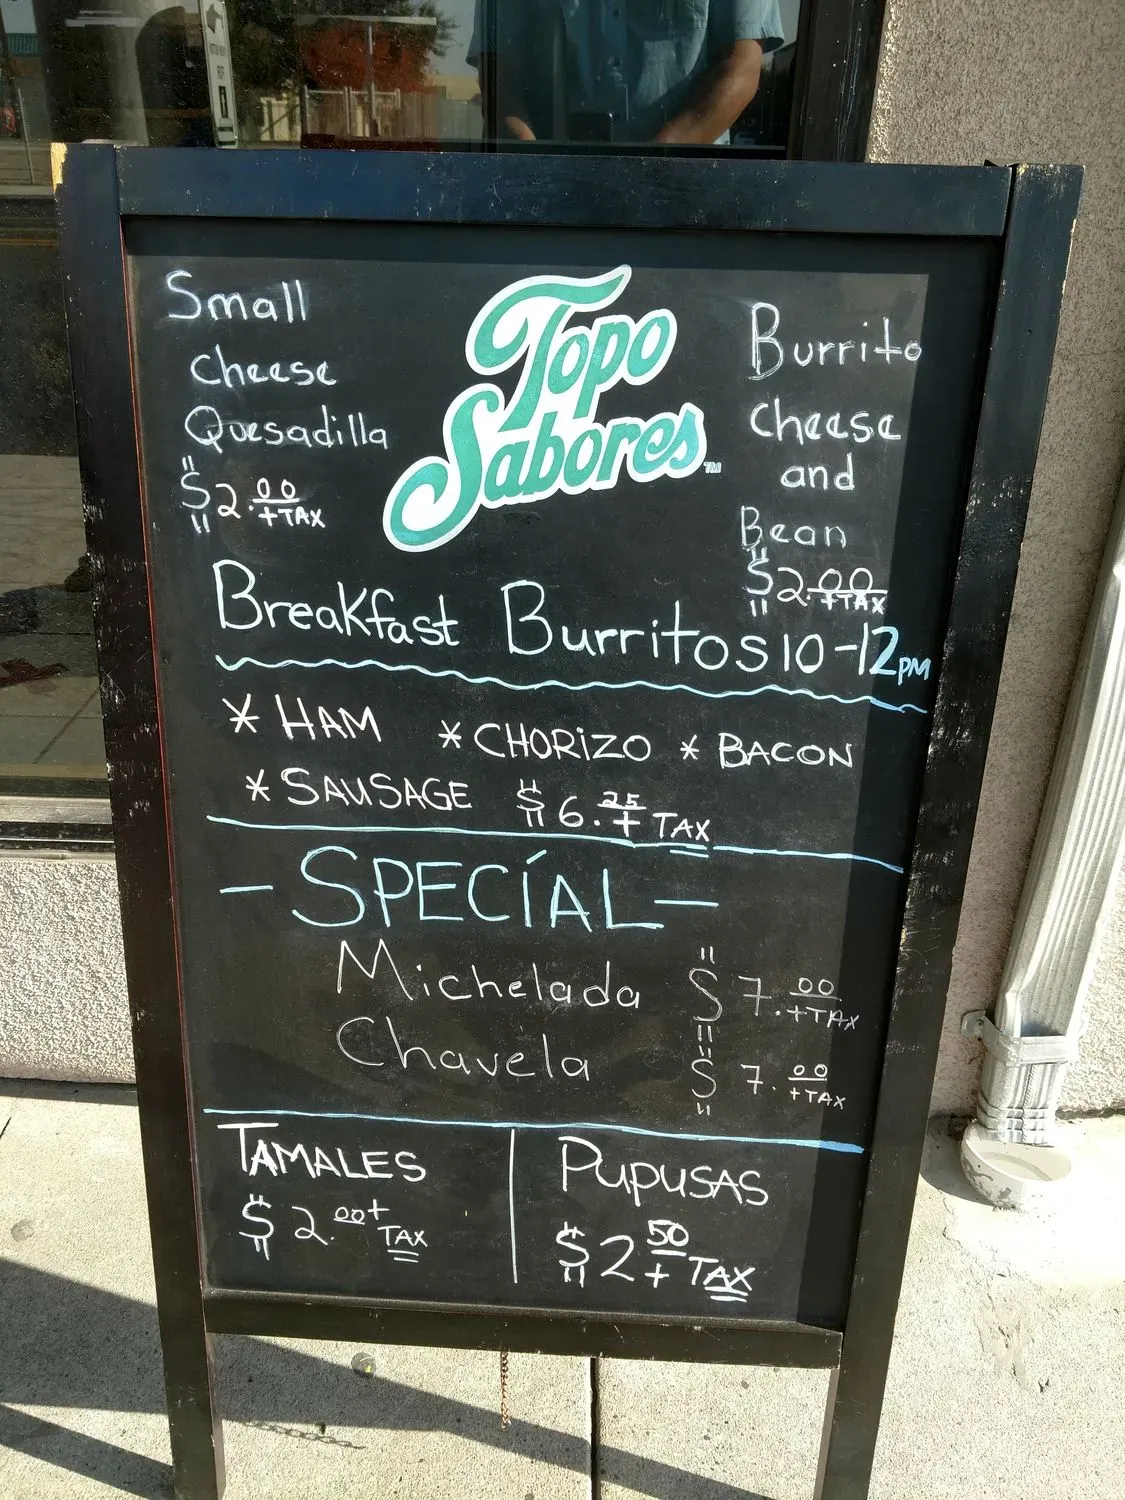 Small
Cheese
Quesadilla
$2.00
+TAX
Topo
Sabores™
Burrito
Cheese
and
Bean
$2.00
+TAX
Breakfast Burritos 10-12PM
* HAM * CHORIZO * BACON
* SAUSAGE $6.25 + TAX
- SPECÍAL -
Michelada $7.00 +TAX
Chavela $7.00 +TAX
TAMALES
$2.00+ TAX
PUPUSAS
$2 50 + TAX